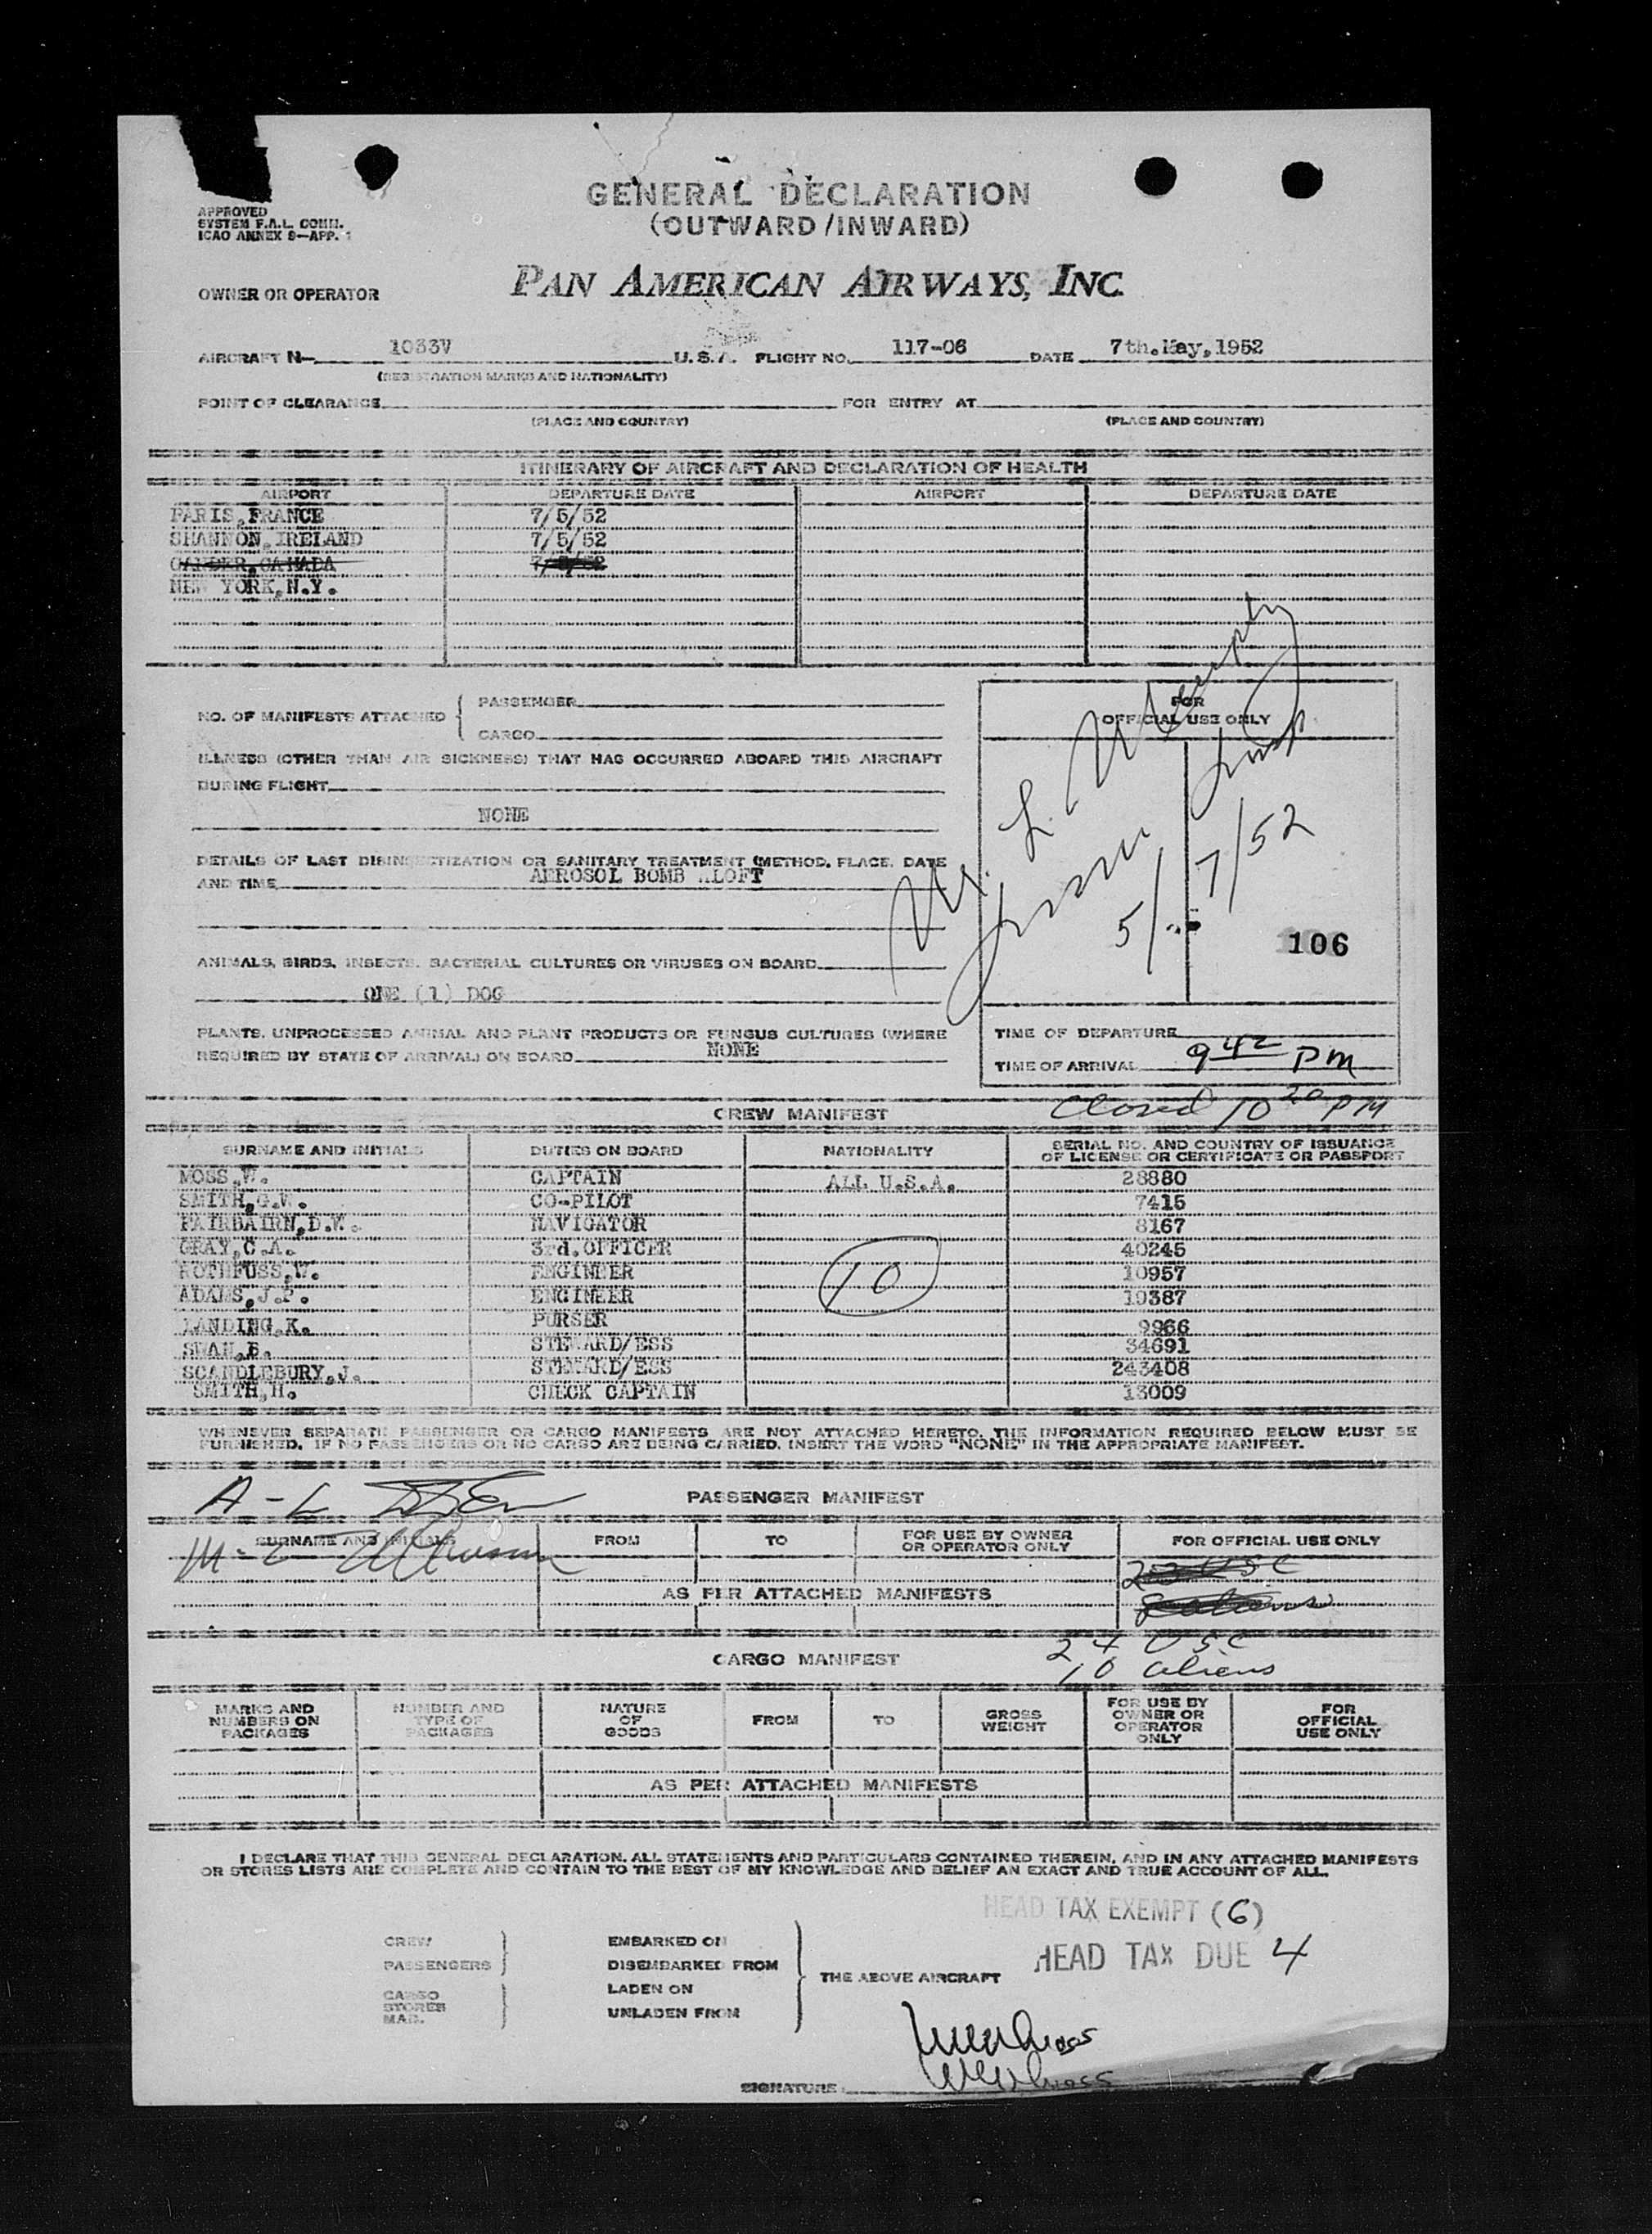 GENERAL DECLARATION
(OUTWARD/INWARD)
APPROVED
SYSTEM F.A.L. COMM.
ICAO ANNEX 9—APP. 1
OWNER OR OPERATOR PAN AMERICAN AIRWAYS, INC.
AIRCRAFT N— 1033V U.S.A. FLIGHT NO. 117-06 DATE 7th.May,1952
(REGISTRATION MARKS AND NATIONALITY)
POINT OF CLEARANCE FOR ENTRY AT
(PLACE AND COUNTRY) (PLACE AND COUNTRY)
ITINERARY OF AIRCRAFT AND DECLARATION OF HEALTH
AIRPORT DEPARTURE DATE AIRPORT DEPARTURE DATE
PARIS,FRANCE 7/5/52
SHANNON,IRELAND 7/5/52
GANDER,CANADA 7/5/52
NEW YORK,N.Y.
NO. OF MANIFESTS ATTACHED { PASSENGER
CARGO
FOR
OFFICIAL USE ONLY
ILLNESS (OTHER THAN AIR SICKNESS) THAT HAS OCCURRED ABOARD THIS AIRCRAFT
DURING FLIGHT
NONE
DETAILS OF LAST DISINSECTIZATION OR SANITARY TREATMENT (METHOD, PLACE, DATE
AND TIME AEROSOL BOMB ALOFT
5/7/52
106
ANIMALS, BIRDS, INSECTS, BACTERIAL CULTURES OR VIRUSES ON BOARD
ONE (1) DOG
PLANTS, UNPROCESSED ANIMAL AND PLANT PRODUCTS OR FUNGUS CULTURES (WHERE
REQUIRED BY STATE OF ARRIVAL) ON BOARD NONE
TIME OF DEPARTURE
TIME OF ARRIVAL 9 42 PM
Closed 10 20 PM
CREW MANIFEST
SURNAME AND INITIALS DUTIES ON BOARD NATIONALITY SERIAL NO. AND COUNTRY OF ISSUANCE
OF LICENSE OR CERTIFICATE OR PASSPORT
MOSS,W. CAPTAIN ALL U.S.A. 28880
SMITH,G.W. CO-PILOT 7415
FAIRBAIRN,D.W. NAVIGATOR 8167
GRAY,C.A. 3rd.OFFICER 40245
ROTHFUSS,W. ENGINEER 10 10957
ADAMS,J.P. ENGINEER 10387
LANDING,K. PURSER 9966
SWAN,B. STEWARD/ESS 34691
SCANDLEBURY,J. STEWARD/ESS 243408
SMITH,H. CHECK CAPTAIN 13009
WHENEVER SEPARATE PASSENGER OR CARGO MANIFESTS ARE NOT ATTACHED HERETO, THE INFORMATION REQUIRED BELOW MUST BE
FURNISHED. IF NO PASSENGERS OR NO CARGO ARE BEING CARRIED, INSERT THE WORD "NONE" IN THE APPROPRIATE MANIFEST.
A-L
PASSENGER MANIFEST
M-Z
SURNAME AND INITIALS FROM TO FOR USE BY OWNER
OR OPERATOR ONLY FOR OFFICIAL USE ONLY
AS PER ATTACHED MANIFESTS
24 USC
10 aliens
CARGO MANIFEST
MARKS AND
NUMBERS ON
PACKAGES NUMBER AND
TYPE OF
PACKAGES NATURE
OF
GOODS FROM TO GROSS
WEIGHT FOR USE BY
OWNER OR
OPERATOR
ONLY FOR
OFFICIAL
USE ONLY
AS PER ATTACHED MANIFESTS
I DECLARE THAT THIS GENERAL DECLARATION, ALL STATEMENTS AND PARTICULARS CONTAINED THEREIN, AND IN ANY ATTACHED MANIFESTS
OR STORES LISTS ARE COMPLETE AND CONTAIN TO THE BEST OF MY KNOWLEDGE AND BELIEF AN EXACT AND TRUE ACCOUNT OF ALL.
HEAD TAX EXEMPT (6)
HEAD TAX DUE 4
CREW
PASSENGERS
CARGO
STORES
MAIL
EMBARKED ON
DISEMBARKED FROM
LADEN ON
UNLADEN FROM
THE ABOVE AIRCRAFT
SIGNATURE